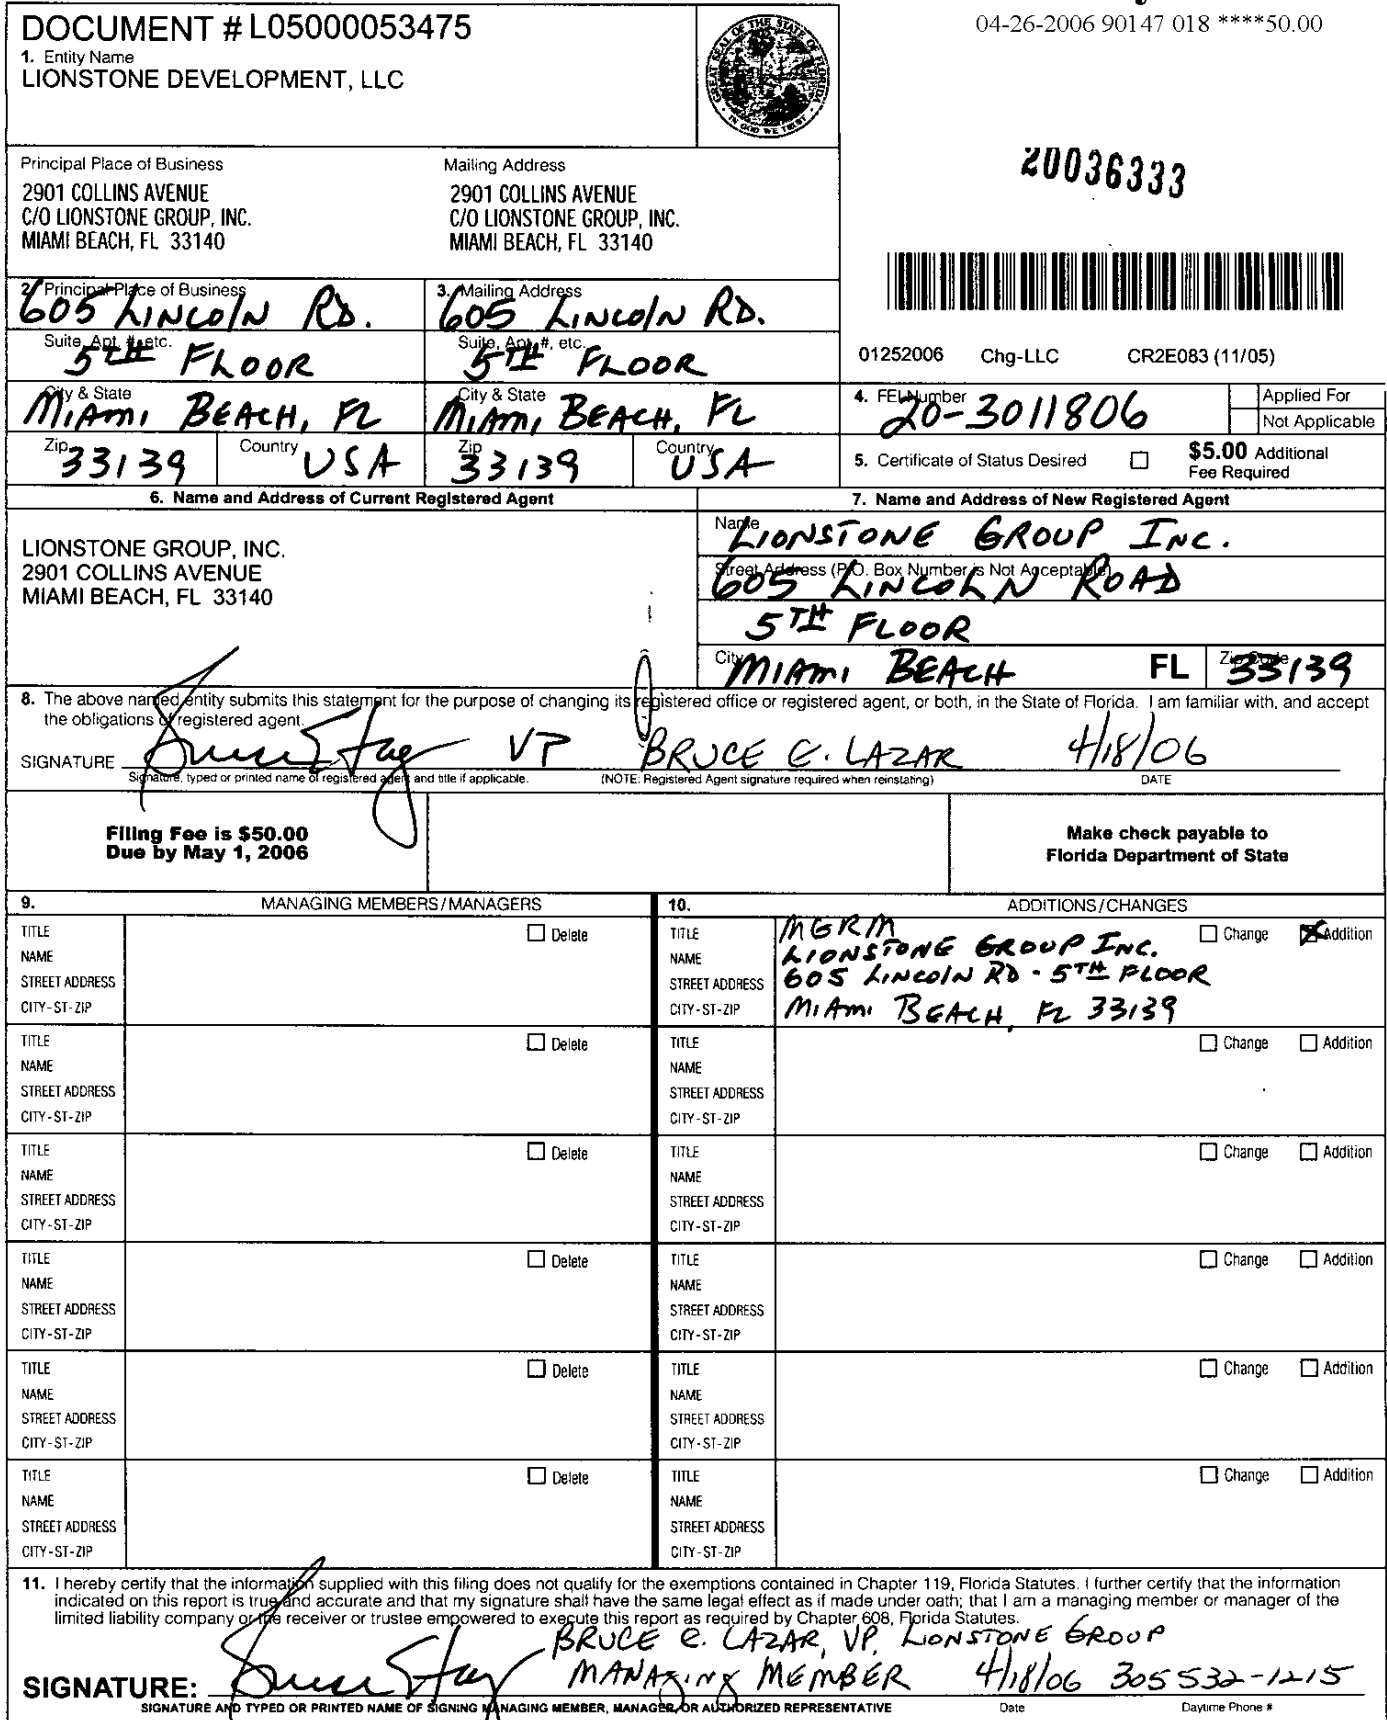 DOCUMENT # L05000053475
04-26-2006 90147 018 ****50.00
1. Entity Name
LIONSTONE DEVELOPMENT, LLC
GREAT SEAL OF THE STATE OF FLORIDA
IN GOD WE TRUST
20036333
Principal Place of Business
2901 COLLINS AVENUE
C/O LIONSTONE GROUP, INC.
MIAMI BEACH, FL 33140
Mailing Address
2901 COLLINS AVENUE
C/O LIONSTONE GROUP, INC.
MIAMI BEACH, FL 33140
2. Principal Place of Business
605 LINCOLN RD.
Suite, Apt. #, etc.
5TH FLOOR
City & State
MIAMI BEACH, FL
Zip 33139 Country USA
3. Mailing Address
605 LINCOLN RD.
Suite, Apt. #, etc.
5TH FLOOR
City & State
MIAMI BEACH, FL
Zip 33139 Country USA
01252006 Chg-LLC CR2E083 (11/05)
4. FEI Number
20-3011806
Applied For
Not Applicable
5. Certificate of Status Desired
$5.00 Additional
Fee Required
6. Name and Address of Current Registered Agent
LIONSTONE GROUP, INC.
2901 COLLINS AVENUE
MIAMI BEACH, FL 33140
7. Name and Address of New Registered Agent
Name
LIONSTONE GROUP INC.
Street Address (P.O. Box Number is Not Acceptable)
605 LINCOLN ROAD
5TH FLOOR
City MIAMI BEACH FL Zip Code 33139
8. The above named entity submits this statement for the purpose of changing its registered office or registered agent, or both, in the State of Florida. I am familiar with, and accept
the obligations of registered agent.
SIGNATURE VP BRUCE E. LAZAR 4/18/06
Signature, typed or printed name of registered agent and title if applicable. (NOTE: Registered Agent signature required when reinstating) DATE
Filing Fee is $50.00
Due by May 1, 2006
Make check payable to
Florida Department of State
9. MANAGING MEMBERS/MANAGERS
TITLE Delete
NAME
STREET ADDRESS
CITY-ST-ZIP
TITLE Delete
NAME
STREET ADDRESS
CITY-ST-ZIP
TITLE Delete
NAME
STREET ADDRESS
CITY-ST-ZIP
TITLE Delete
NAME
STREET ADDRESS
CITY-ST-ZIP
TITLE Delete
NAME
STREET ADDRESS
CITY-ST-ZIP
TITLE Delete
NAME
STREET ADDRESS
CITY-ST-ZIP
10. ADDITIONS/CHANGES
TITLE MGRM Change Addition
NAME LIONSTONE GROUP INC.
STREET ADDRESS 605 LINCOLN RD - 5TH FLOOR
CITY-ST-ZIP MIAMI BEACH, FL 33139
TITLE Change Addition
NAME
STREET ADDRESS
CITY-ST-ZIP
TITLE Change Addition
NAME
STREET ADDRESS
CITY-ST-ZIP
TITLE Change Addition
NAME
STREET ADDRESS
CITY-ST-ZIP
TITLE Change Addition
NAME
STREET ADDRESS
CITY-ST-ZIP
TITLE Change Addition
NAME
STREET ADDRESS
CITY-ST-ZIP
11. I hereby certify that the information supplied with this filing does not qualify for the exemptions contained in Chapter 119, Florida Statutes. I further certify that the information
indicated on this report is true and accurate and that my signature shall have the same legal effect as if made under oath; that I am a managing member or manager of the
limited liability company or the receiver or trustee empowered to execute this report as required by Chapter 608, Florida Statutes.
BRUCE E. LAZAR, VP, LIONSTONE GROUP
SIGNATURE: MANAGING MEMBER 4/18/06 305 532-1215
SIGNATURE AND TYPED OR PRINTED NAME OF SIGNING MANAGING MEMBER, MANAGER, OR AUTHORIZED REPRESENTATIVE Date Daytime Phone #